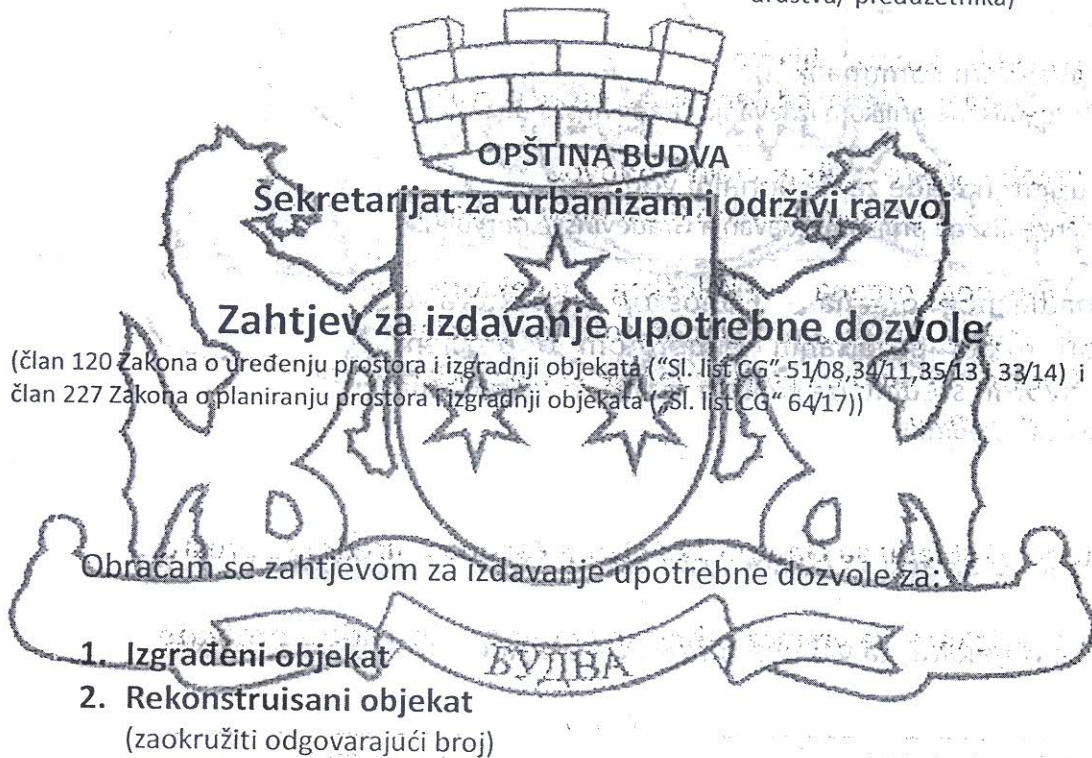 društva/ preduzetnika)
OPŠTINA BUDVA
Sekretarijat za urbanizam i održivi razvoj
Zahtjev za izdavanje upotrebne dozvole
(član 120 Zakona o uređenju prostora i izgradnji objekata ("Sl. list CG" 51/08,34/11,35/13 i 33/14) i
član 227 Zakona o planiranju prostora i izgradnji objekata („Sl. list CG“ 64/17))
Obraćam se zahtjevom za izdavanje upotrebne dozvole za:
1. Izgrađeni objekat
БУДВА
2. Rekonstruisani objekat
(zaokružiti odgovarajući broj)